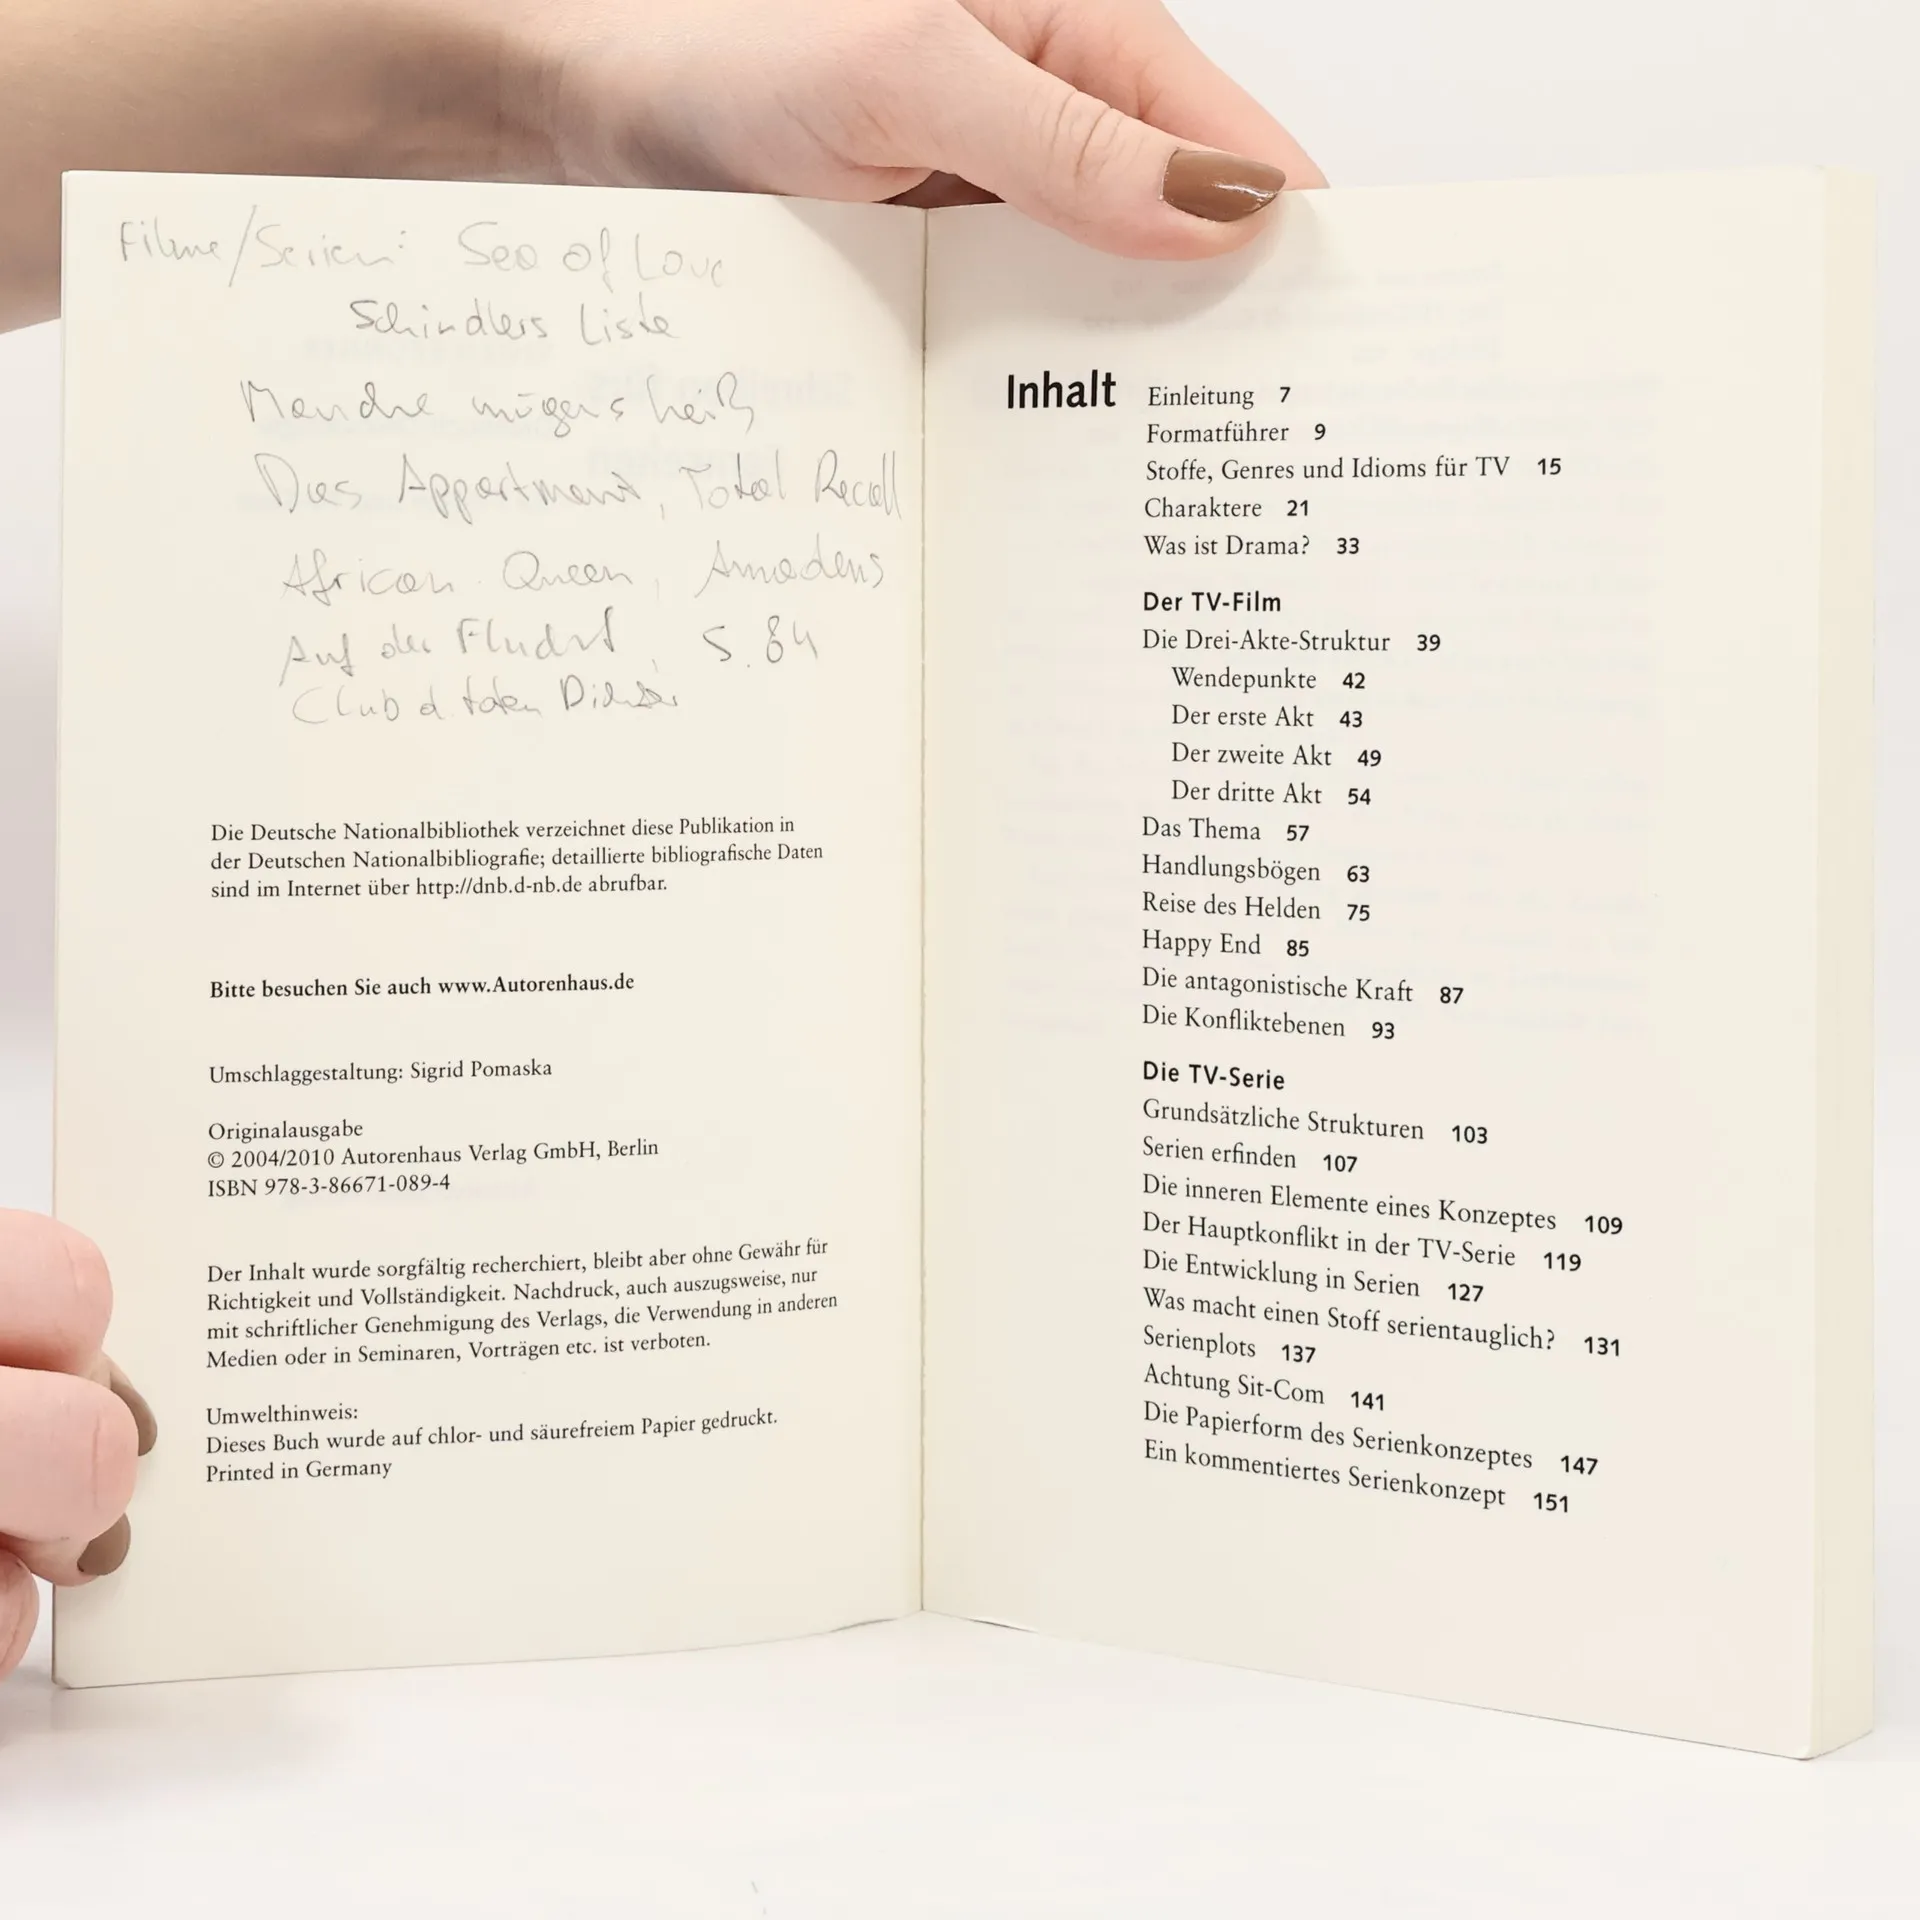 Filme/Serien: Sea of Love
Schindlers Liste
Manche mögens heiß
Das Appartment, Total Recall
African Queen, Amadeus
Auf der Flucht, S. 84
Club d. toten Dichter
Die Deutsche Nationalbibliothek verzeichnet diese Publikation in
der Deutschen Nationalbibliografie; detaillierte bibliografische Daten
sind im Internet über http://dnb.d-nb.de abrufbar.
Bitte besuchen Sie auch www.Autorenhaus.de
Umschlaggestaltung: Sigrid Pomaska
Originalausgabe
© 2004/2010 Autorenhaus Verlag GmbH, Berlin
ISBN 978-3-86671-089-4
Der Inhalt wurde sorgfältig recherchiert, bleibt aber ohne Gewähr für
Richtigkeit und Vollständigkeit. Nachdruck, auch auszugsweise, nur
mit schriftlicher Genehmigung des Verlags, die Verwendung in anderen
Medien oder in Seminaren, Vorträgen etc. ist verboten.
Umwelthinweis:
Dieses Buch wurde auf chlor- und säurefreiem Papier gedruckt.
Printed in Germany
Inhalt
Einleitung 7
Formatführer 9
Stoffe, Genres und Idioms für TV 15
Charaktere 21
Was ist Drama? 33
Der TV-Film
Die Drei-Akte-Struktur 39
Wendepunkte 42
Der erste Akt 43
Der zweite Akt 49
Der dritte Akt 54
Das Thema 57
Handlungsbögen 63
Reise des Helden 75
Happy End 85
Die antagonistische Kraft 87
Die Konfliktebenen 93
Die TV-Serie
Grundsätzliche Strukturen 103
Serien erfinden 107
Die inneren Elemente eines Konzeptes 109
Der Hauptkonflikt in der TV-Serie 119
Die Entwicklung in Serien 127
Was macht einen Stoff serientauglich? 131
Serienplots 137
Achtung Sit-Com 141
Die Papierform des Serienkonzeptes 147
Ein kommentiertes Serienkonzept 151